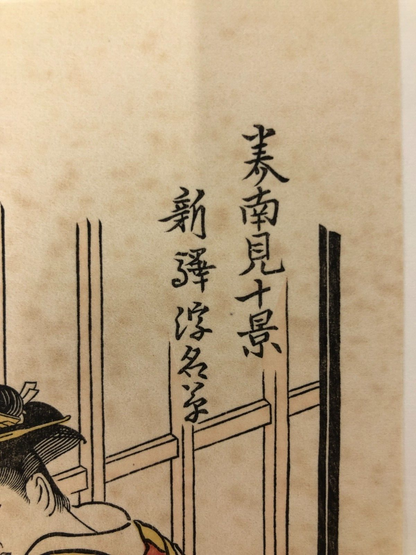 美南見十景
新驛浮名草